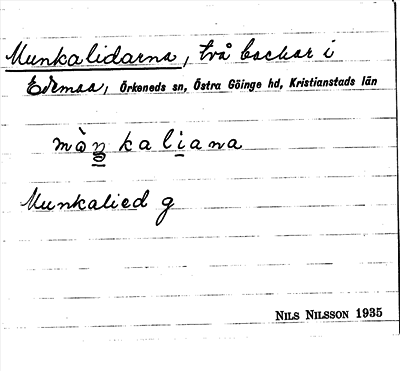 Munkalidarna, två backar i
Edemaa, Örkeneds sn, Östra Göinge hd, Kristianstads län
mòŋkaliana
Munkalied g
NILS NILSSON 1935